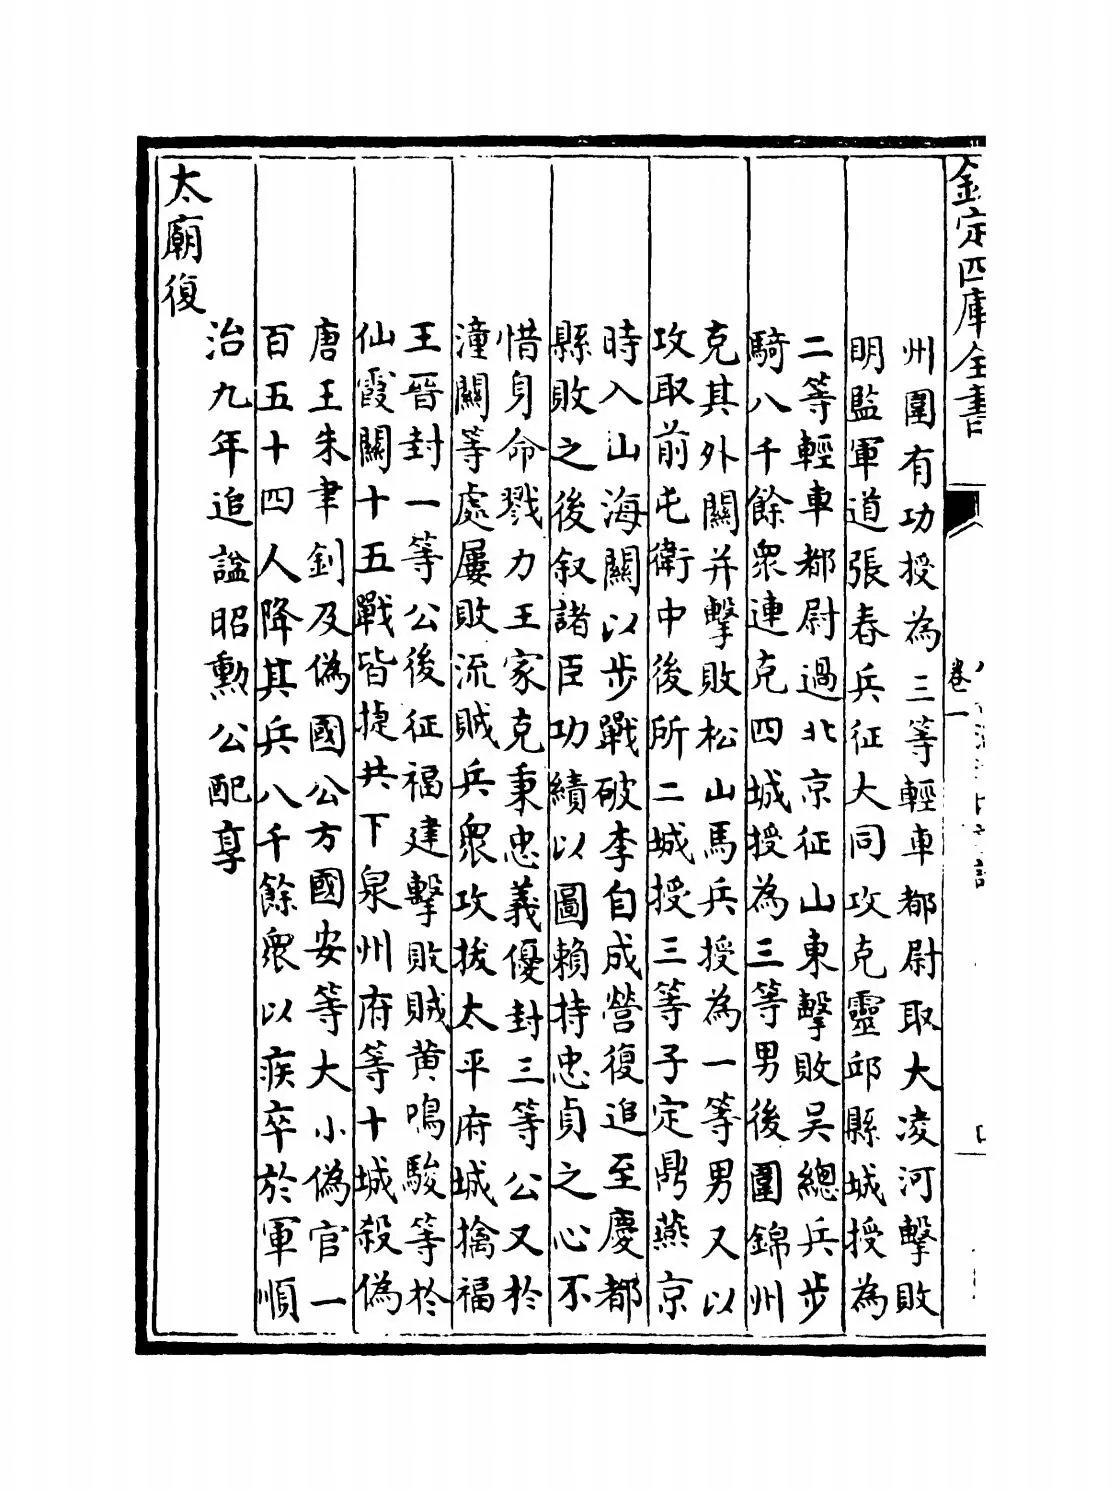 欽定四庫全書
卷一
州圍有功授為三等輕車都尉取大凌河擊敗
明監軍道張春兵征大同攻克靈邱縣城授為
二等輕車都尉過北京征山東擊敗吳總兵步
騎八千餘衆連克四城授為三等男後圍錦州
克其外關并擊敗松山馬兵授為一等男又以
攻取前屯衛中後所二城授三等子定鼎燕京
時入山海關以步戰破李自成營復追至慶都
縣敗之後叙諸臣功績以圖賴持忠貞之心不
惜身命戮力王家克秉忠義優封三等公又於
潼關等處屢敗流賊兵衆攻拔太平府城擒福
王晉封一等公後征福建擊敗賊黃鳴駿等於
仙霞關十五戰皆捷共下泉州府等十城殺偽
唐王朱聿釗及偽國公方國安等大小偽官一
百五十四人降其兵八千餘衆以疾卒於軍順
治九年追諡昭勲公配享
太廟復